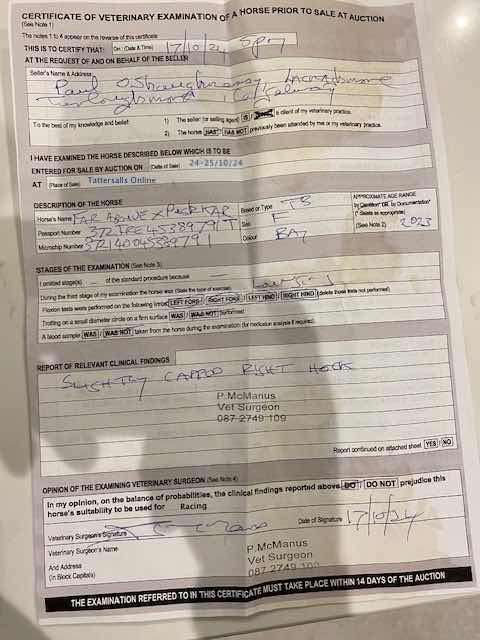 CERTIFICATE OF VETERINARY EXAMINATION OF A HORSE PRIOR TO SALE AT AUCTION
(See Note 1)
The notes 1 to 4 appear on the reverse of this certificate
THIS IS TO CERTIFY THAT: On: (Date & Time) 17/10/24 5pm
AT THE REQUEST OF AND ON BEHALF OF THE SELLER
Seller's Name & Address
Paul O Shaughnessy,
Co Galway
To the best of my knowledge and belief: 1) The seller (or selling agent) IS is client of my veterinary practice.
2) The horse HAS / HAS NOT previously been attended by me or my veterinary practice.
I HAVE EXAMINED THE HORSE DESCRIBED BELOW WHICH IS TO BE
ENTERED FOR SALE BY AUCTION ON (Date of Sale) 24-25/10/24
AT (Place of Sale) Tattersalls Online
DESCRIPTION OF THE HORSE
Horse's Name FAR ABOVE X Breed or Type TB
Passport Number Sex F
Microchip Number 372140045389791 Colour BAY
APPROXIMATE AGE RANGE
by Dentition* OR by Documentation*
(* Delete as appropriate)
(See Note 2) 2023
STAGES OF THE EXAMINATION (See Note 3)
I omitted stage(s) — of the standard procedure because —
During the third stage of my examination the horse was (State the type of exercise)
Flexion tests were performed on the following limbs LEFT FORE / RIGHT FORE / LEFT HIND / RIGHT HIND (delete those tests not performed)
Trotting on a small diameter circle on a firm surface WAS / WAS NOT performed
A blood sample WAS / WAS NOT taken from the horse during the examination (for medication analysis if required)
REPORT OF RELEVANT CLINICAL FINDINGS
SLIGHTLY CAPPED RIGHT HOCK
P.McManus
Vet Surgeon
087 2749 109
Report continued on attached sheet YES / NO
OPINION OF THE EXAMINING VETERINARY SURGEON (See Note 4)
In my opinion, on the balance of probabilities, the clinical findings reported above DO / DO NOT prejudice this
horse's suitability to be used for Racing
Veterinary Surgeon's Signature Date of Signature 17/10/24
Veterinary Surgeon's Name
And Address
(In Block Capitals)
P.McManus
Vet Surgeon
087 2749 109
THE EXAMINATION REFERRED TO IN THIS CERTIFICATE MUST TAKE PLACE WITHIN 14 DAYS OF THE AUCTION